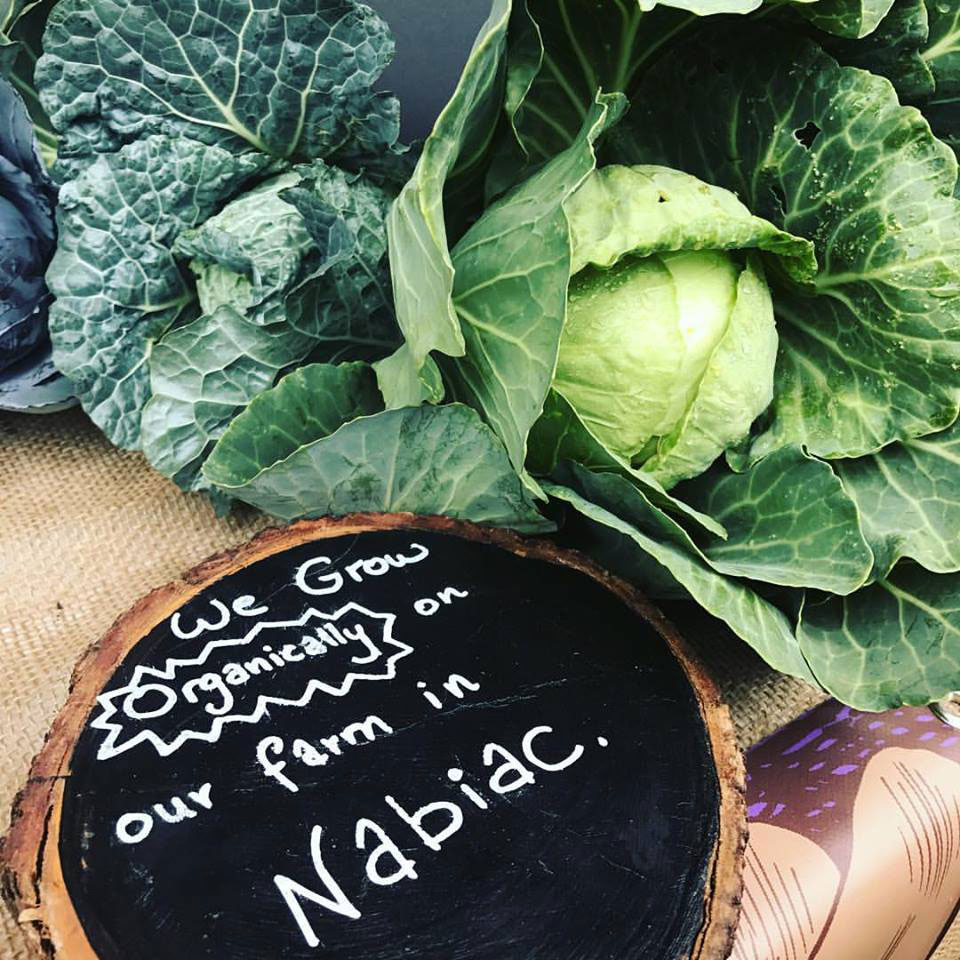 We Grow
Organically on
our farm in
Nabiac.